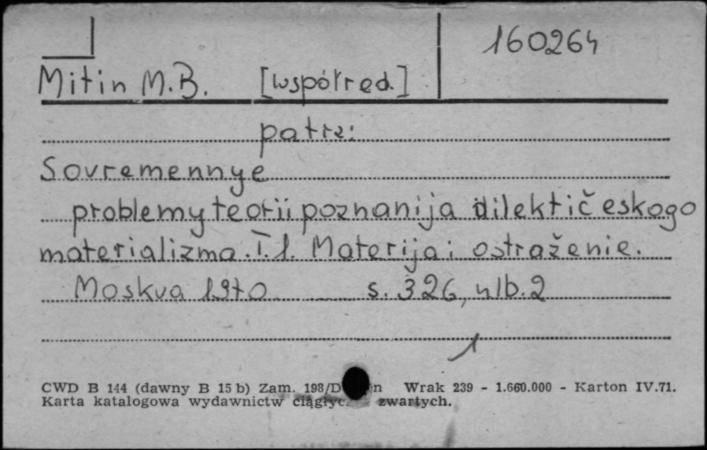 160264
Mitin M.B. [współred.]
patrz:
Sovremennye
problemy teorii poznanija dilektičeskogo
materializma. T. 1. Materija i ostraženie.
Moskva 1970 s. 326, nlb. 2
CWD B 144 (dawny B 15 b) Zam. 198/D n Wrak 239 - 1.660.000 - Karton IV.71.
Karta katalogowa wydawnictw zwartych.